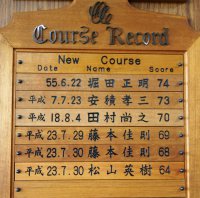 Course Record
New Course
Date Name Score
55.6.22 堀田正明 74
平成 7.7.23 安積孝三 73
平成 18.8.4 田村尚之 70
平成 23.7.29 藤本佳則 69
平成 23.7.30 藤本佳則 68
平成 23.7.30 松山英樹 64